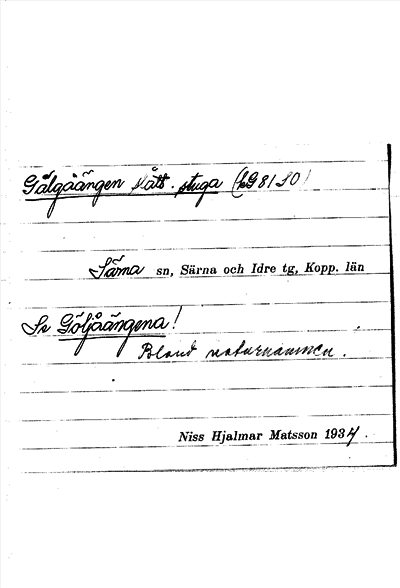 Gålgåängen slått. stuga (bG8150)
Särna sn, Särna och Idre tg, Kopp. län
Se Göljåängena!
Bland naturnamnen.
Niss Hjalmar Matsson 1934.